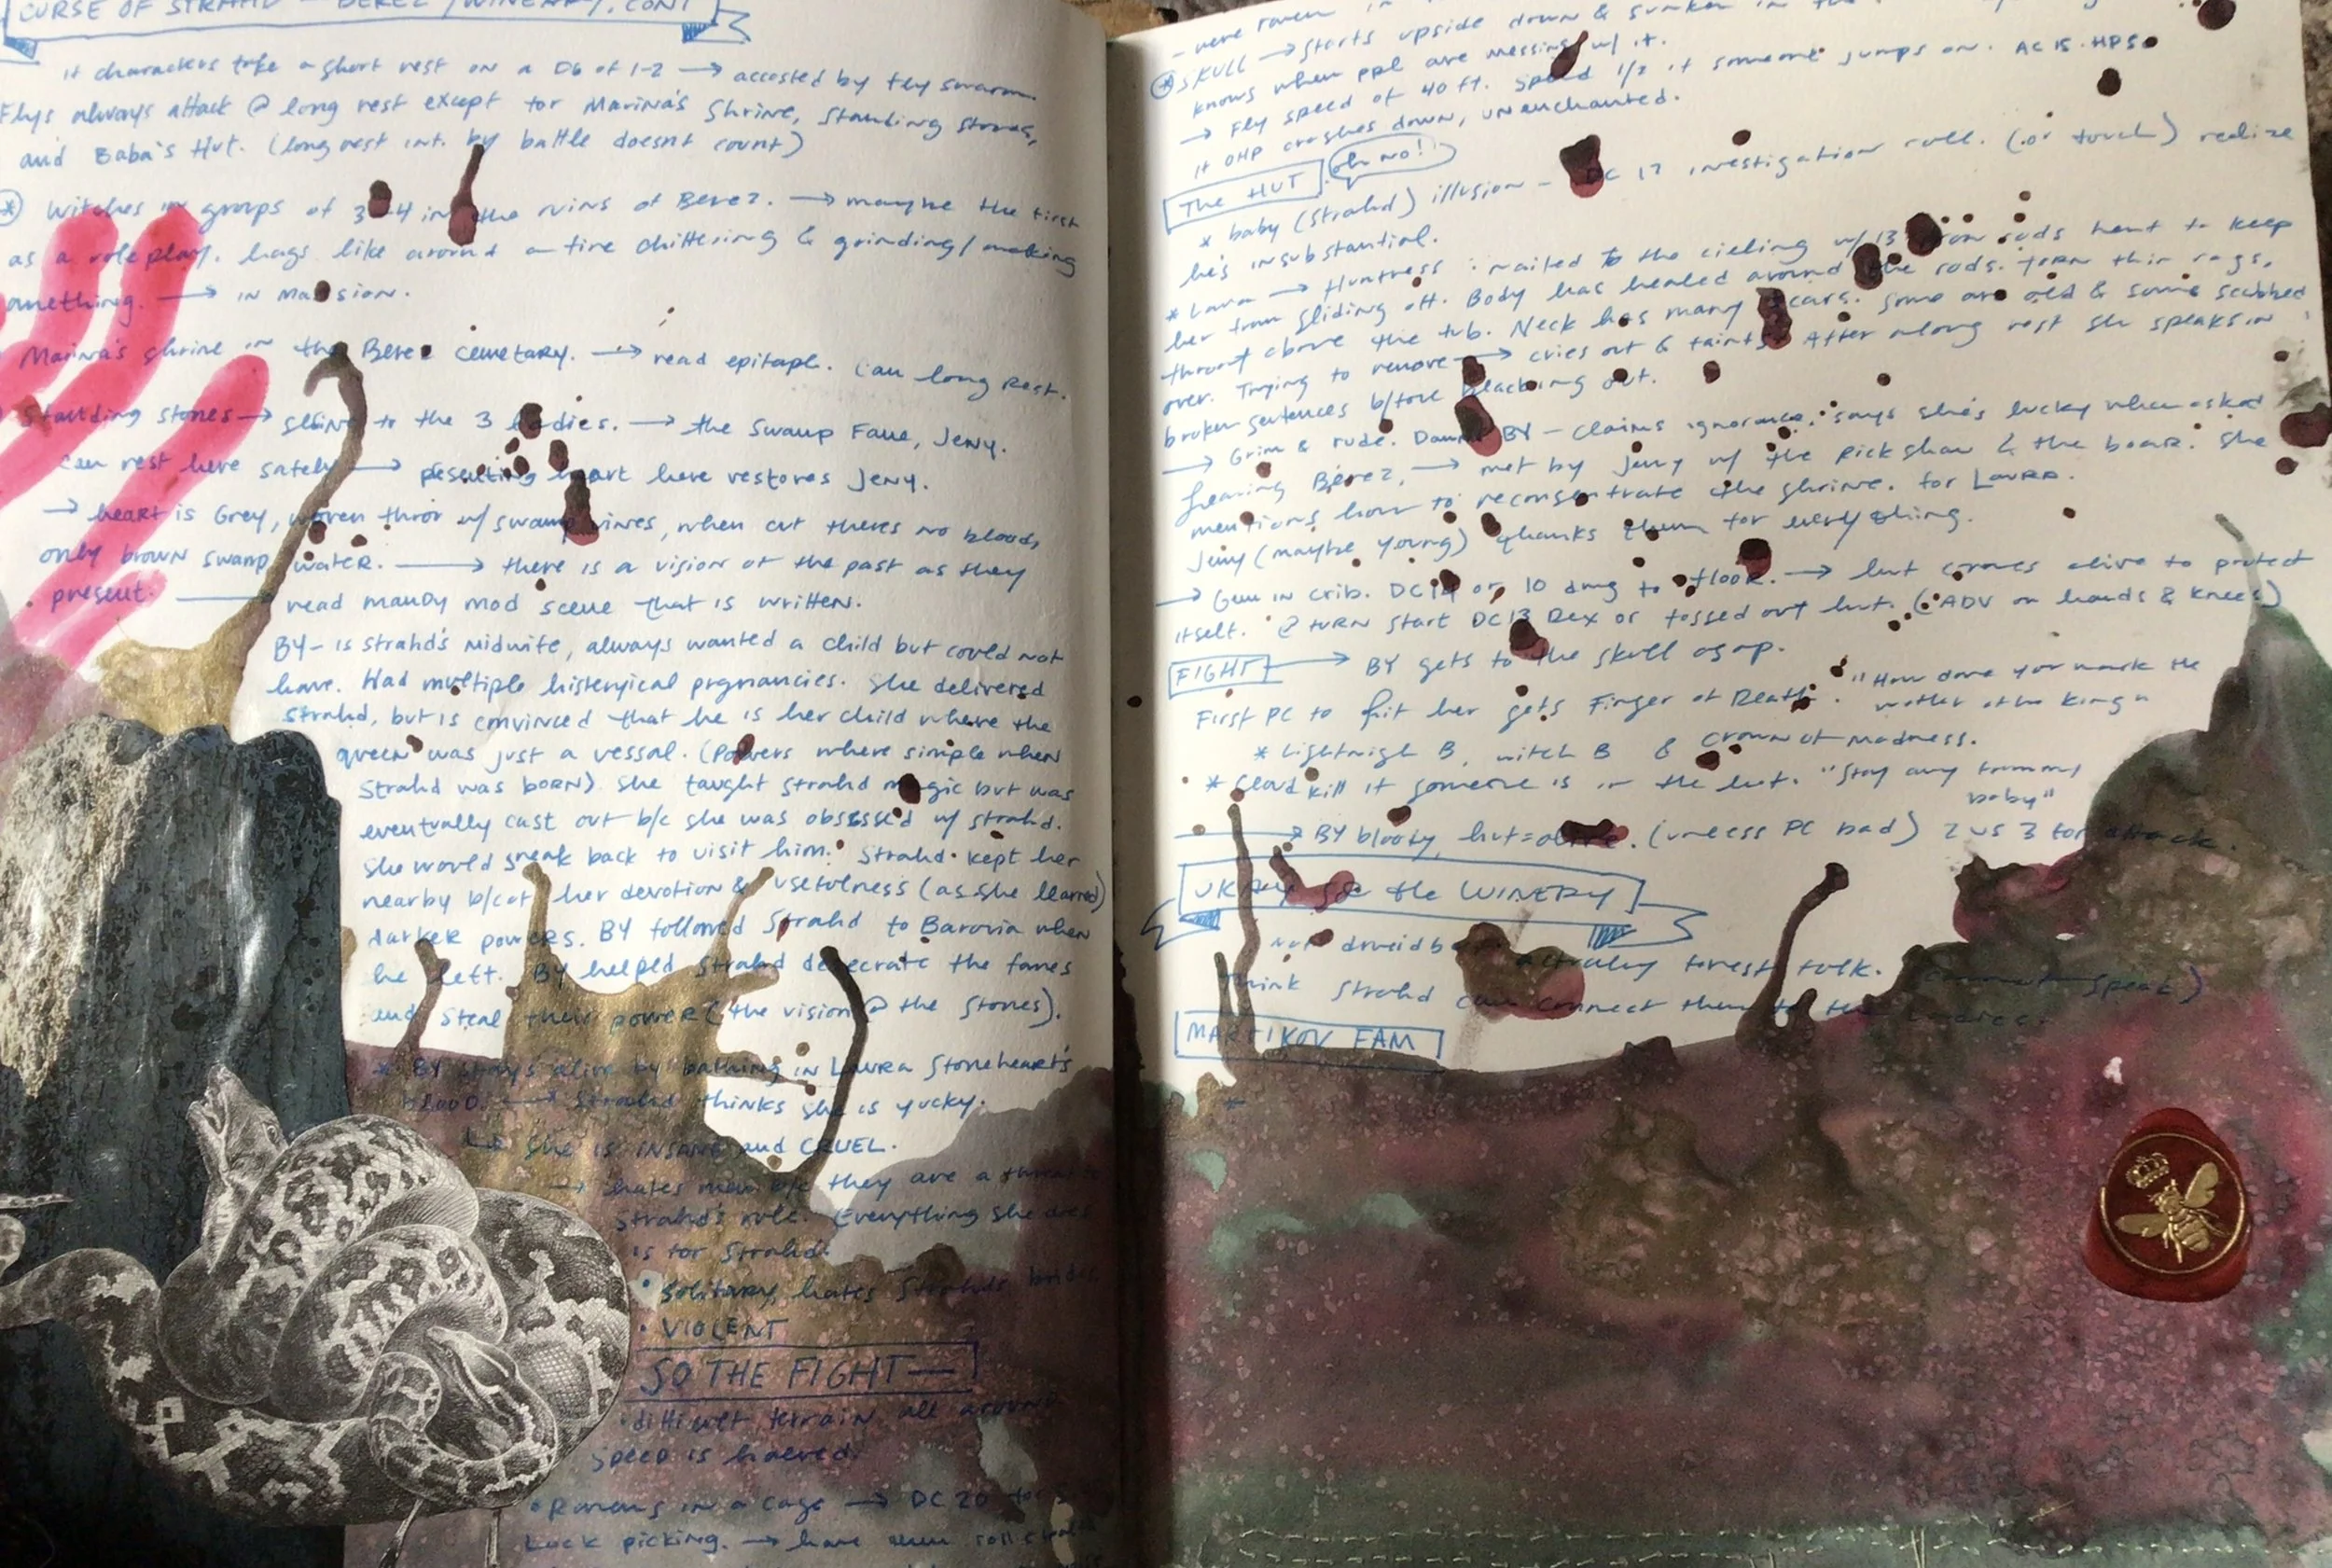 CURSE OF STRAHD — BEREZ / WINERY, CONT
If characters take a short rest on a D6 of 1-2 → accosted by fly swarm.
Flys always attack @ long rest except for Marina's Shrine, Standing Stones,
and Baba's Hut. (long rest int. by battle doesnt count)
* Witches in groups of 3-4 in the ruins of Berez. → maybe the first
as a roleplay. hags like around a fire chittering & grinding/making
anething. → in Mansion.
Marina's shrine in the Berez cemetary. → read epitaph. Can long rest.
Standing stones → shrine to the 3 ladies. → the Swamp Fane, Jeny.
can rest here safely → presenting heart here restores Jeny.
→ heart is Grey, woven thror w/ swamp vines, when cut theres no blood,
only brown swamp water. → there is a vision of the past as they
present. → read mandy mod scene that is written.
BY - is Strahd's midwife, always wanted a child but could not
have. Had multiple histerical pregnancies. She delivered
Strahd, but is convinced that he is her child where the
queen was just a vessal. (Powers where simple when
Strahd was born). She taught Strahd magic but was
eventually cast out b/c she was obsessed w/ Strahd.
She would sneak back to visit him. Strahd kept her
nearby b/c of her devotion & usefulness (as she learned)
darker powers. BY followed Strahd to Barovia when
he left. BY helped Strahd desecrate the fanes
and steal their power (the vision @ the stones).
* BY stays alive by bathing in Laura Stoneheart's
blood. → Strahd thinks she is yucky.
↳ she is INSANE and CRUEL.
→ hates men b/c they are a threat
Strahd's rule. Everything she does
is for Strahd.
• solitary, hates Strahd's brides
• VIOLENT
SO THE FIGHT—
• difficult terrain all around
speed is halved.
• Ravens in a cage → DC 20 for
Lock picking. → have them roll
- were raven in
* SKULL → starts upside down & sunken in the
knows when ppl are messing w/ it.
→ Fly speed of 40 ft. Speed 1/2 if someone jumps on. AC 15. HP 50
if 0HP crashes down, unenchanted.
THE HUT oh no!
* baby (Strahd) illusion - DC 17 investigation roll. (or touch) realize
he's insubstantial.
* Laura → Huntress : nailed to the cieling w/ 13 iron rods bent to keep
her from sliding off. Body has healed around the rods. torn thin rags,
throat above the tub. Neck has many scars. Some are old & some scabbed
over. Trying to remove → cries out & faints. After a long rest she speaks in
broken sentences before blacking out.
→ Grim & rude. BY - claims ignorance, says she's lucky when asked
Leaving Berez, → met by Jeny w/ the pickshaw & the boar. She
mentions how to reconsentrate the shrine. for Laura.
Jeny (maybe young) thanks them for everything.
→ Gem in crib. DC 14 or 10 dmg to floor. → hut comes alive to protect
itself. @ turn start DC 13 Dex or tossed out hut. (ADV on hands & knees)
FIGHT → BY gets to the skull asap.
First PC to hit her gets Finger of Death. "How dare you mark the
mother of the king"
* Lightnigh B, witch B & crown of madness.
* Cloud kill if someone is in the hut. "Stay away from my
baby"
→ BY bloody, hut = alive. (unless PC bad) 2 vs 3 for attack.
the WINERY
not druid actually forest folk. speak)
think Strahd can connect them to the ladies.
MARTIKOV FAM
*